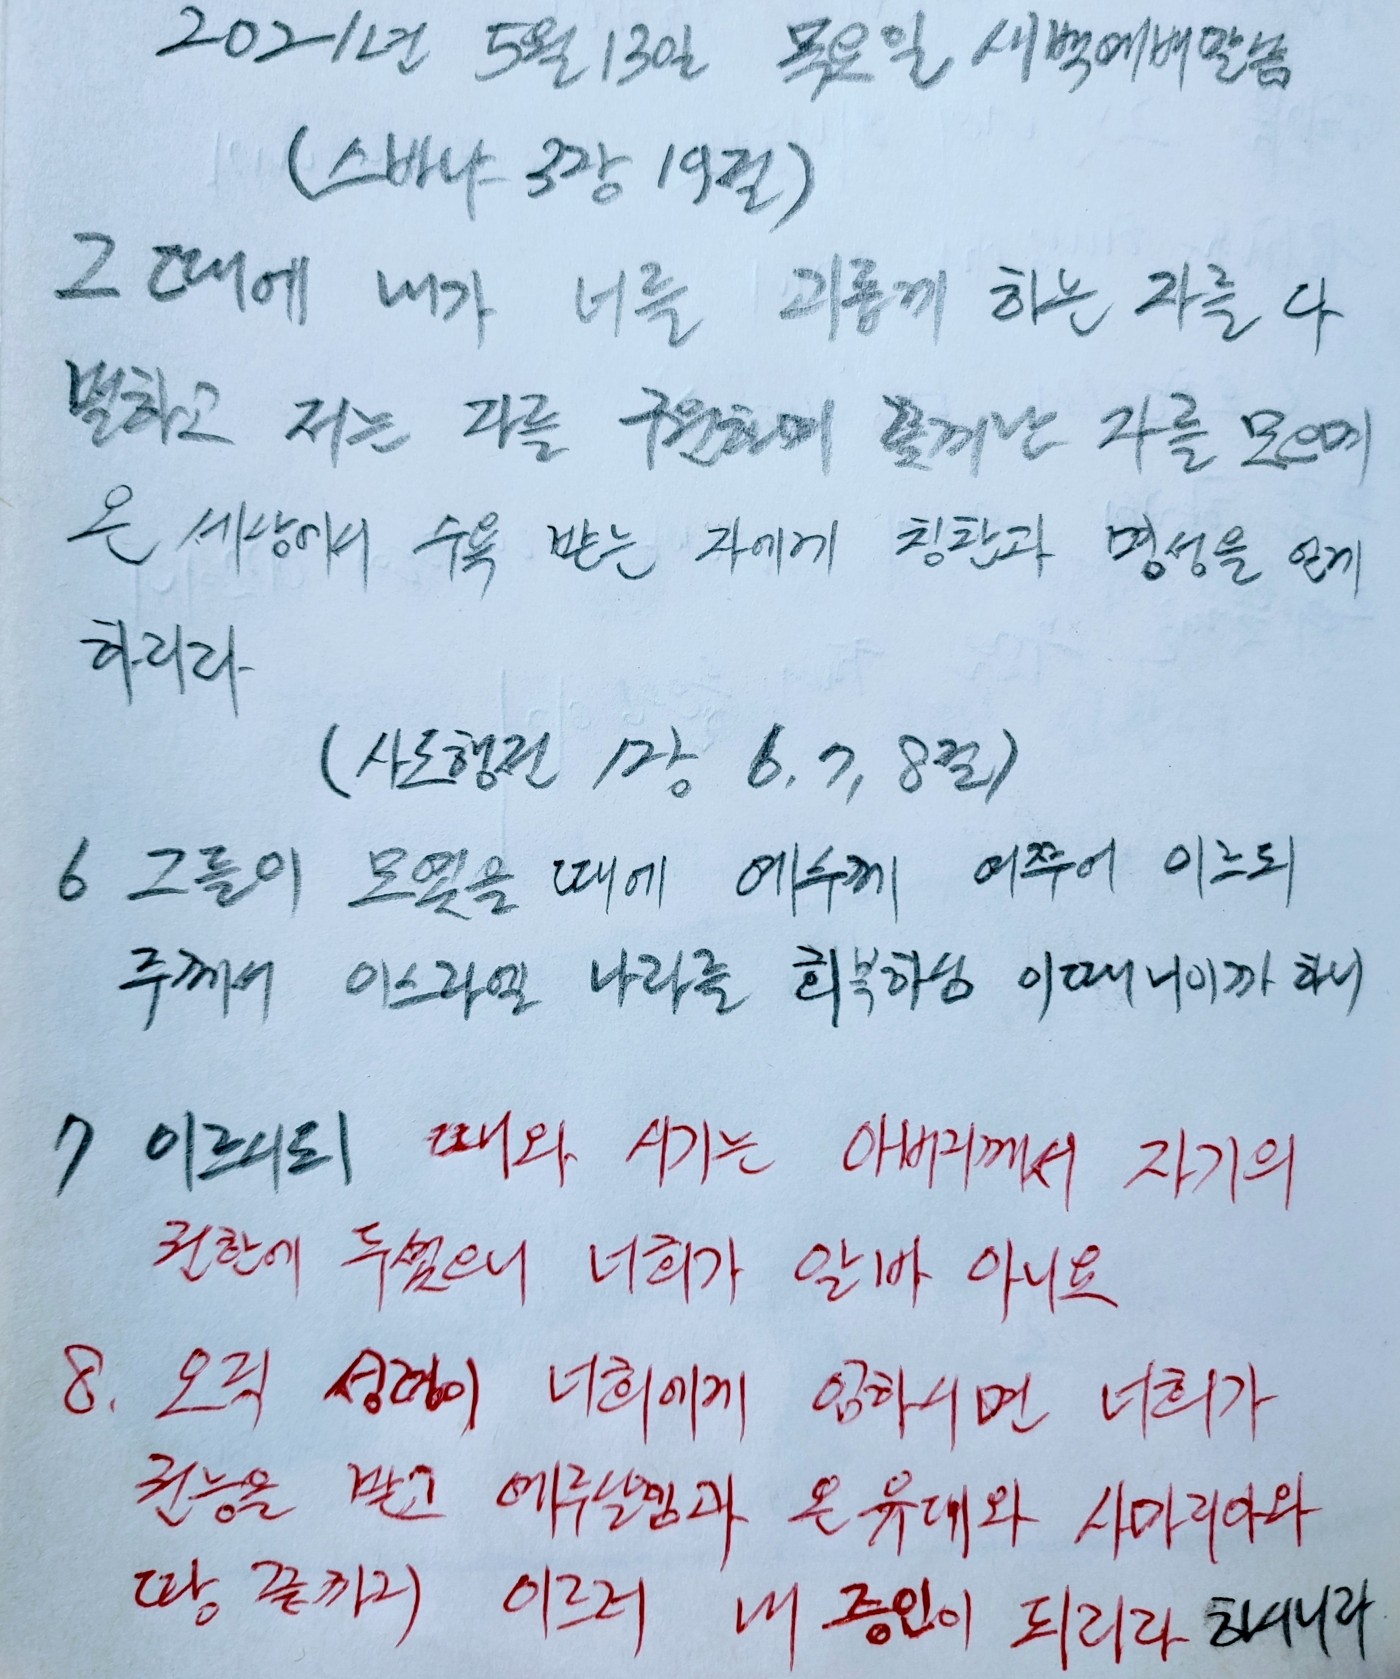 2021년 5월 13일 목요일 새벽예배말씀
(스바냐 3장 19절)
그 때에 내가 너를 괴롭게 하는 자를 다
멸하고 저는 자를 구원하며 쫓겨난 자를 모으며
온 세상에서 수욕 받는 자에게 칭찬과 명성을 얻게
하리라
(사도행전 1장 6, 7, 8절)
6 그들이 모였을 때에 예수께 여쭈어 이르되
주께서 이스라엘 나라를 회복하심 이때니이까 하니
7 이르시되 때와 시기는 아버지께서 자기의
권한에 두셨으니 너희가 알바 아니요
8. 오직 성령이 너희에게 임하시면 너희가
권능을 받고 예루살렘과 온 유대와 사마리아와
땅 끝까지 이르러 내 증인이 되리라 하시니라